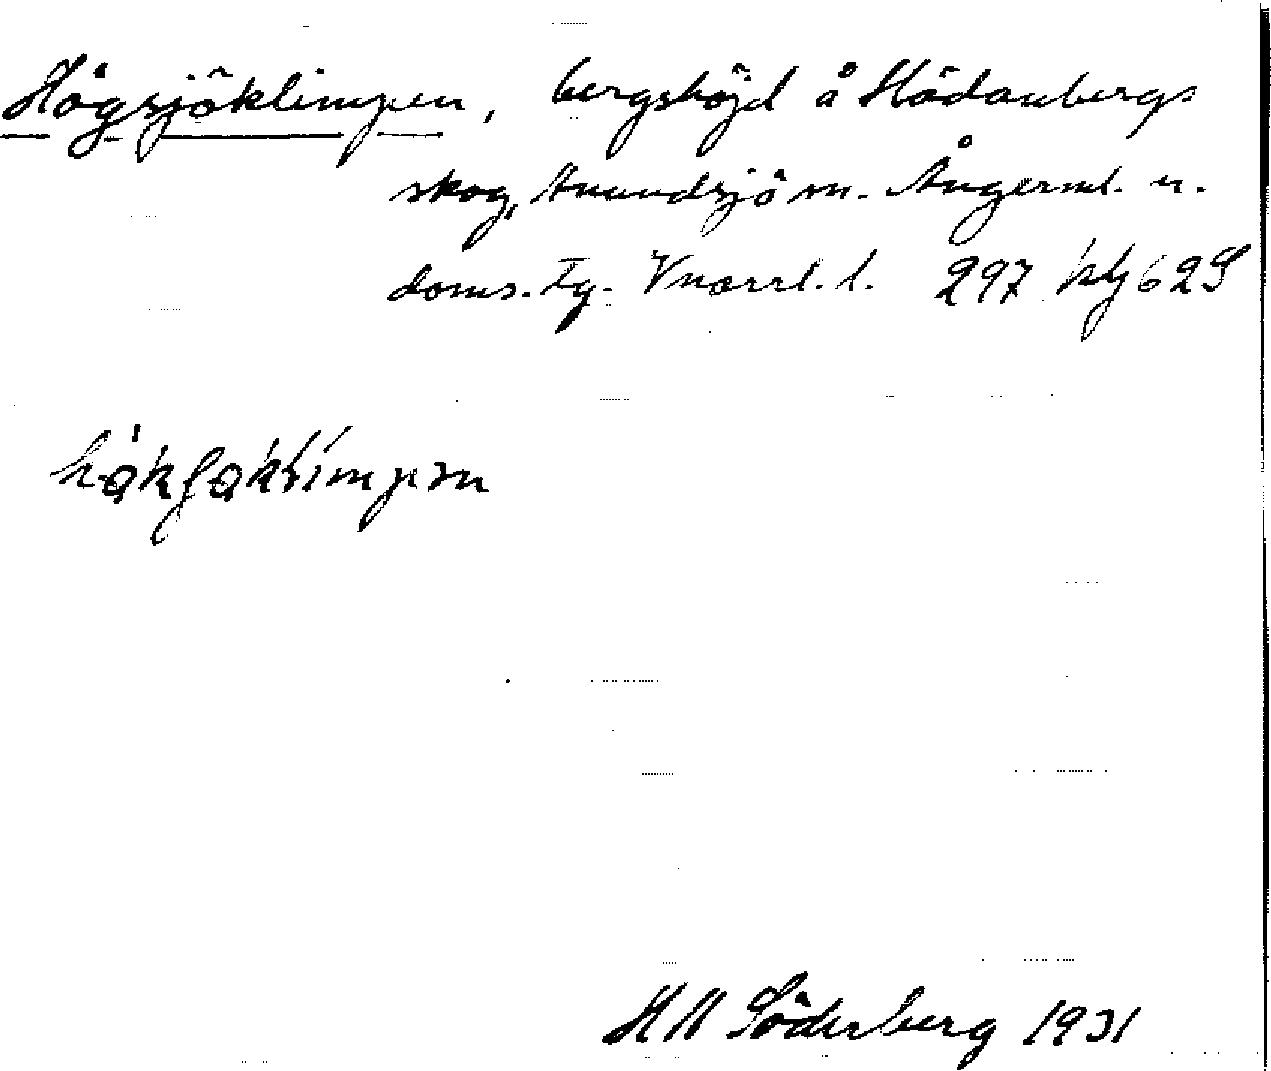 Högsjöklimpen, bergshöjd å Hädanbergs
skog, Anundsjö sn. Ångerml. n.
doms. Tg. Vnorrl. l. 297 hlj 629
H M Söderberg 1931